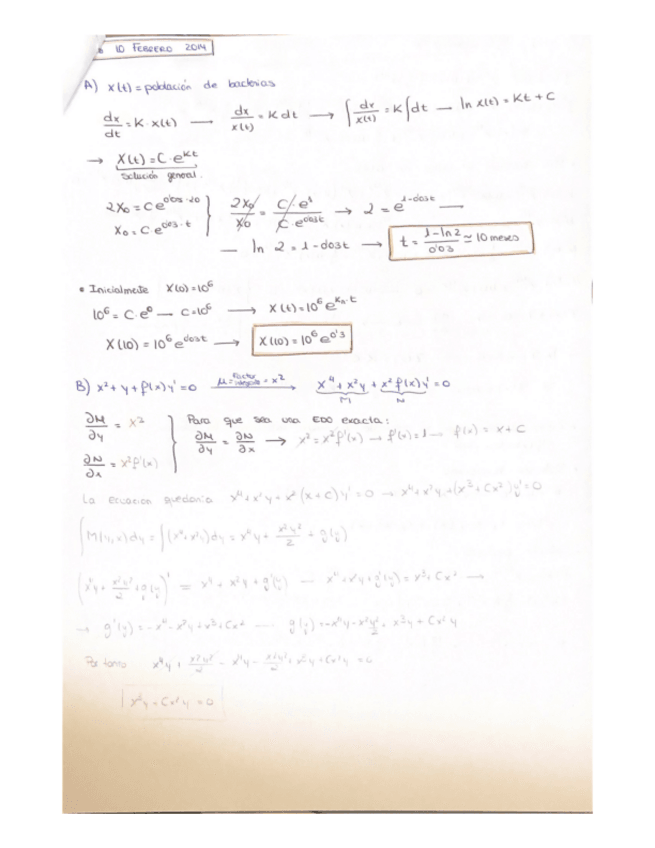 10 FEBRERO 2014
A) x(t) = población de bacterias
dx/dt = K · x(t) → dx/x(t) = K dt → ∫ dx/x(t) = K ∫ dt → ln x(t) = Kt + C
→ X(t) = C · e^{Kt}
Solución general.
2X₀ = C e^{0'03·20} } 2X₀/X₀ = C · e¹/C · e^{0'03t} → 2 = e^{1-0'03t} —
X₀ = C · e^{0'03·t}
— ln 2 = 1 - 0'03t → t = (1 - ln 2)/0'03 ≃ 10 meses
• Inicialmente X(0) = 10⁶
10⁶ = C · e⁰ — C = 10⁶ → X(t) = 10⁶ e^{K·t}
X(10) = 10⁶ e^{0'03t} → X(10) = 10⁶ e^{0'3}
B) x² + y + f(x) y' = 0 μ = Factor integrante = x² → x⁴ + x²y + x² f(x) y' = 0
M N
∂M/∂y = x² } Para que sea una EDO exacta:
∂N/∂x = x² f'(x) ∂M/∂y = ∂N/∂x → x² = x² f'(x) → f'(x) = 1 — f(x) = x + C
La ecuación quedaría x⁴ + x²y + x² (x + C) y' = 0 → x⁴ + x²y + (x³ + Cx²) y' = 0
∫ M(y,x) dy = ∫ (x⁴ + x²y) dy = x⁴y + x²y²/2 + g(y)
(x⁴y + x²y²/2 + g(y))' = x⁴ + x²y + g'(y) — x⁴ + x²y + g'(y) = x³ + Cx² →
→ g'(y) = -x⁴ - x²y + x³ + Cx² — g(y) = -x⁴y - x²y²/2 + x³y + Cx²y
Por tanto x⁴y + x²y²/2 - x⁴y - x²y²/2 + x³y + Cx²y =
x³y + Cx²y = 0